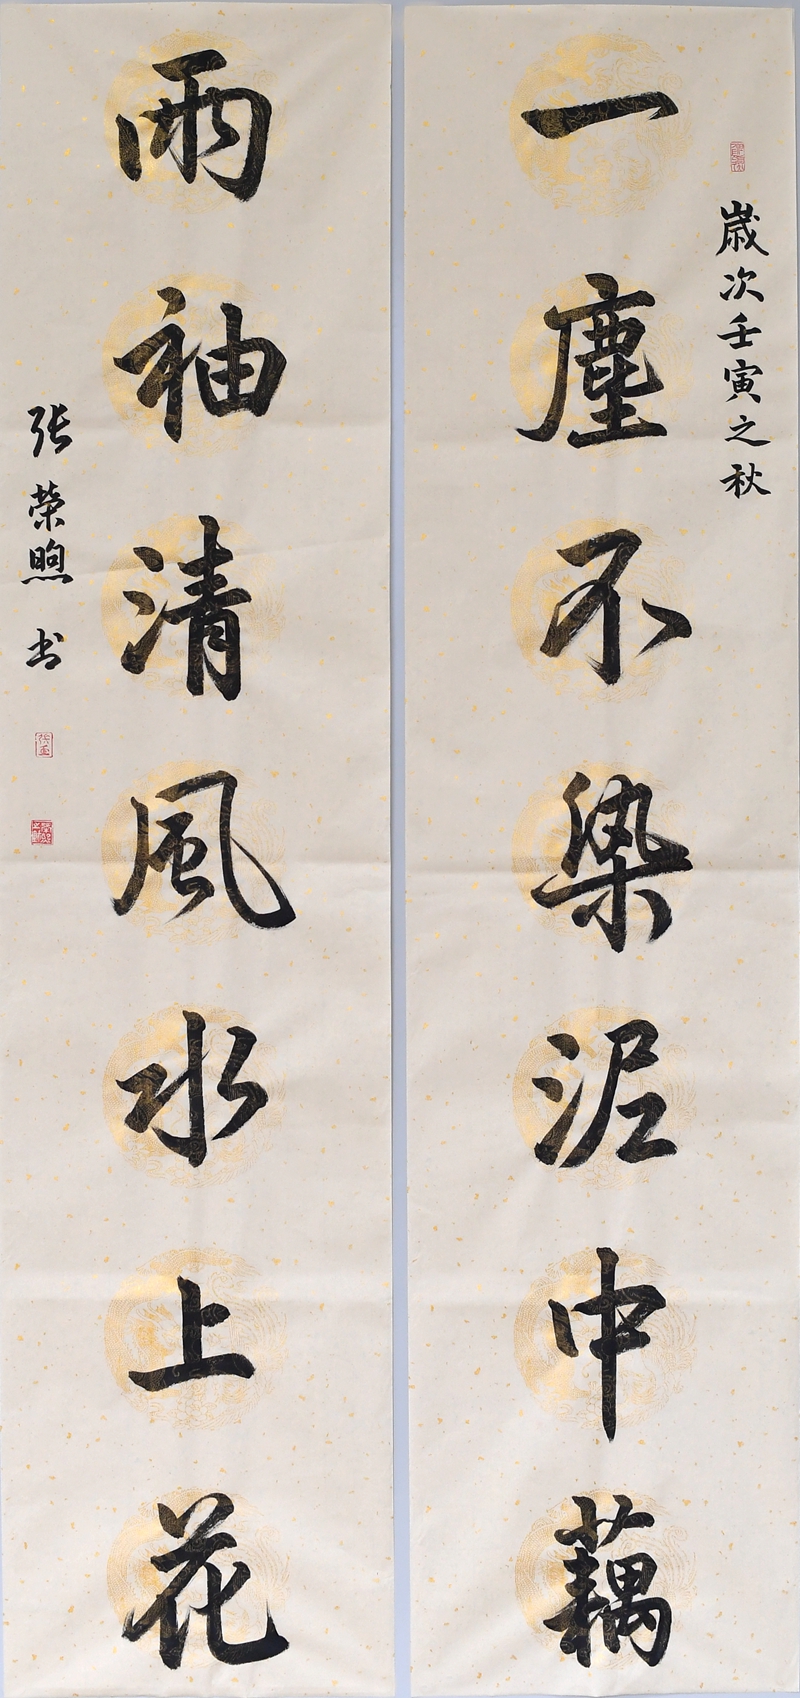 歲次壬寅之秋
一塵不染泥中藕
雨袖清風水上花
張榮煦书